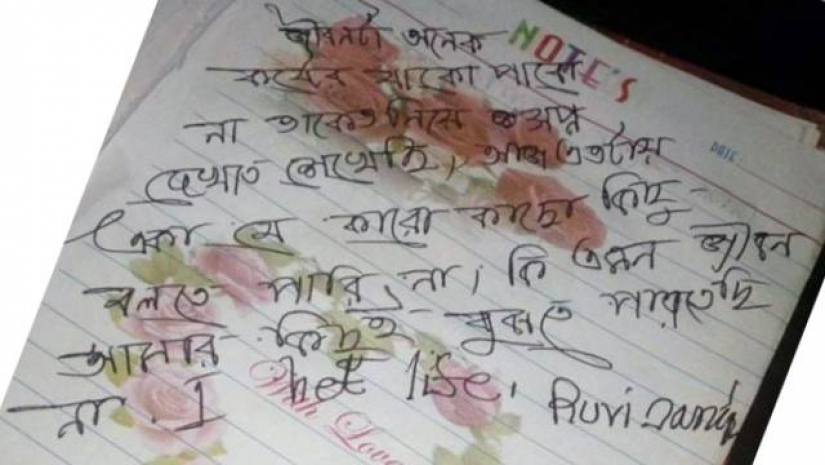 NOTE'S
জীবনটা অনেক
কষ্টের যাকো পাবো
DATE:
না তাকেও নিয়ে স্বপ্ন
দেখতে শেখেছি, আজ এতটায়
একা যে কারো কাছো কিছু
বলতে পারি না। কি এমন জীবন
আমার কিছুই বুঝতে পারতেছি
না. I het life.
With Love